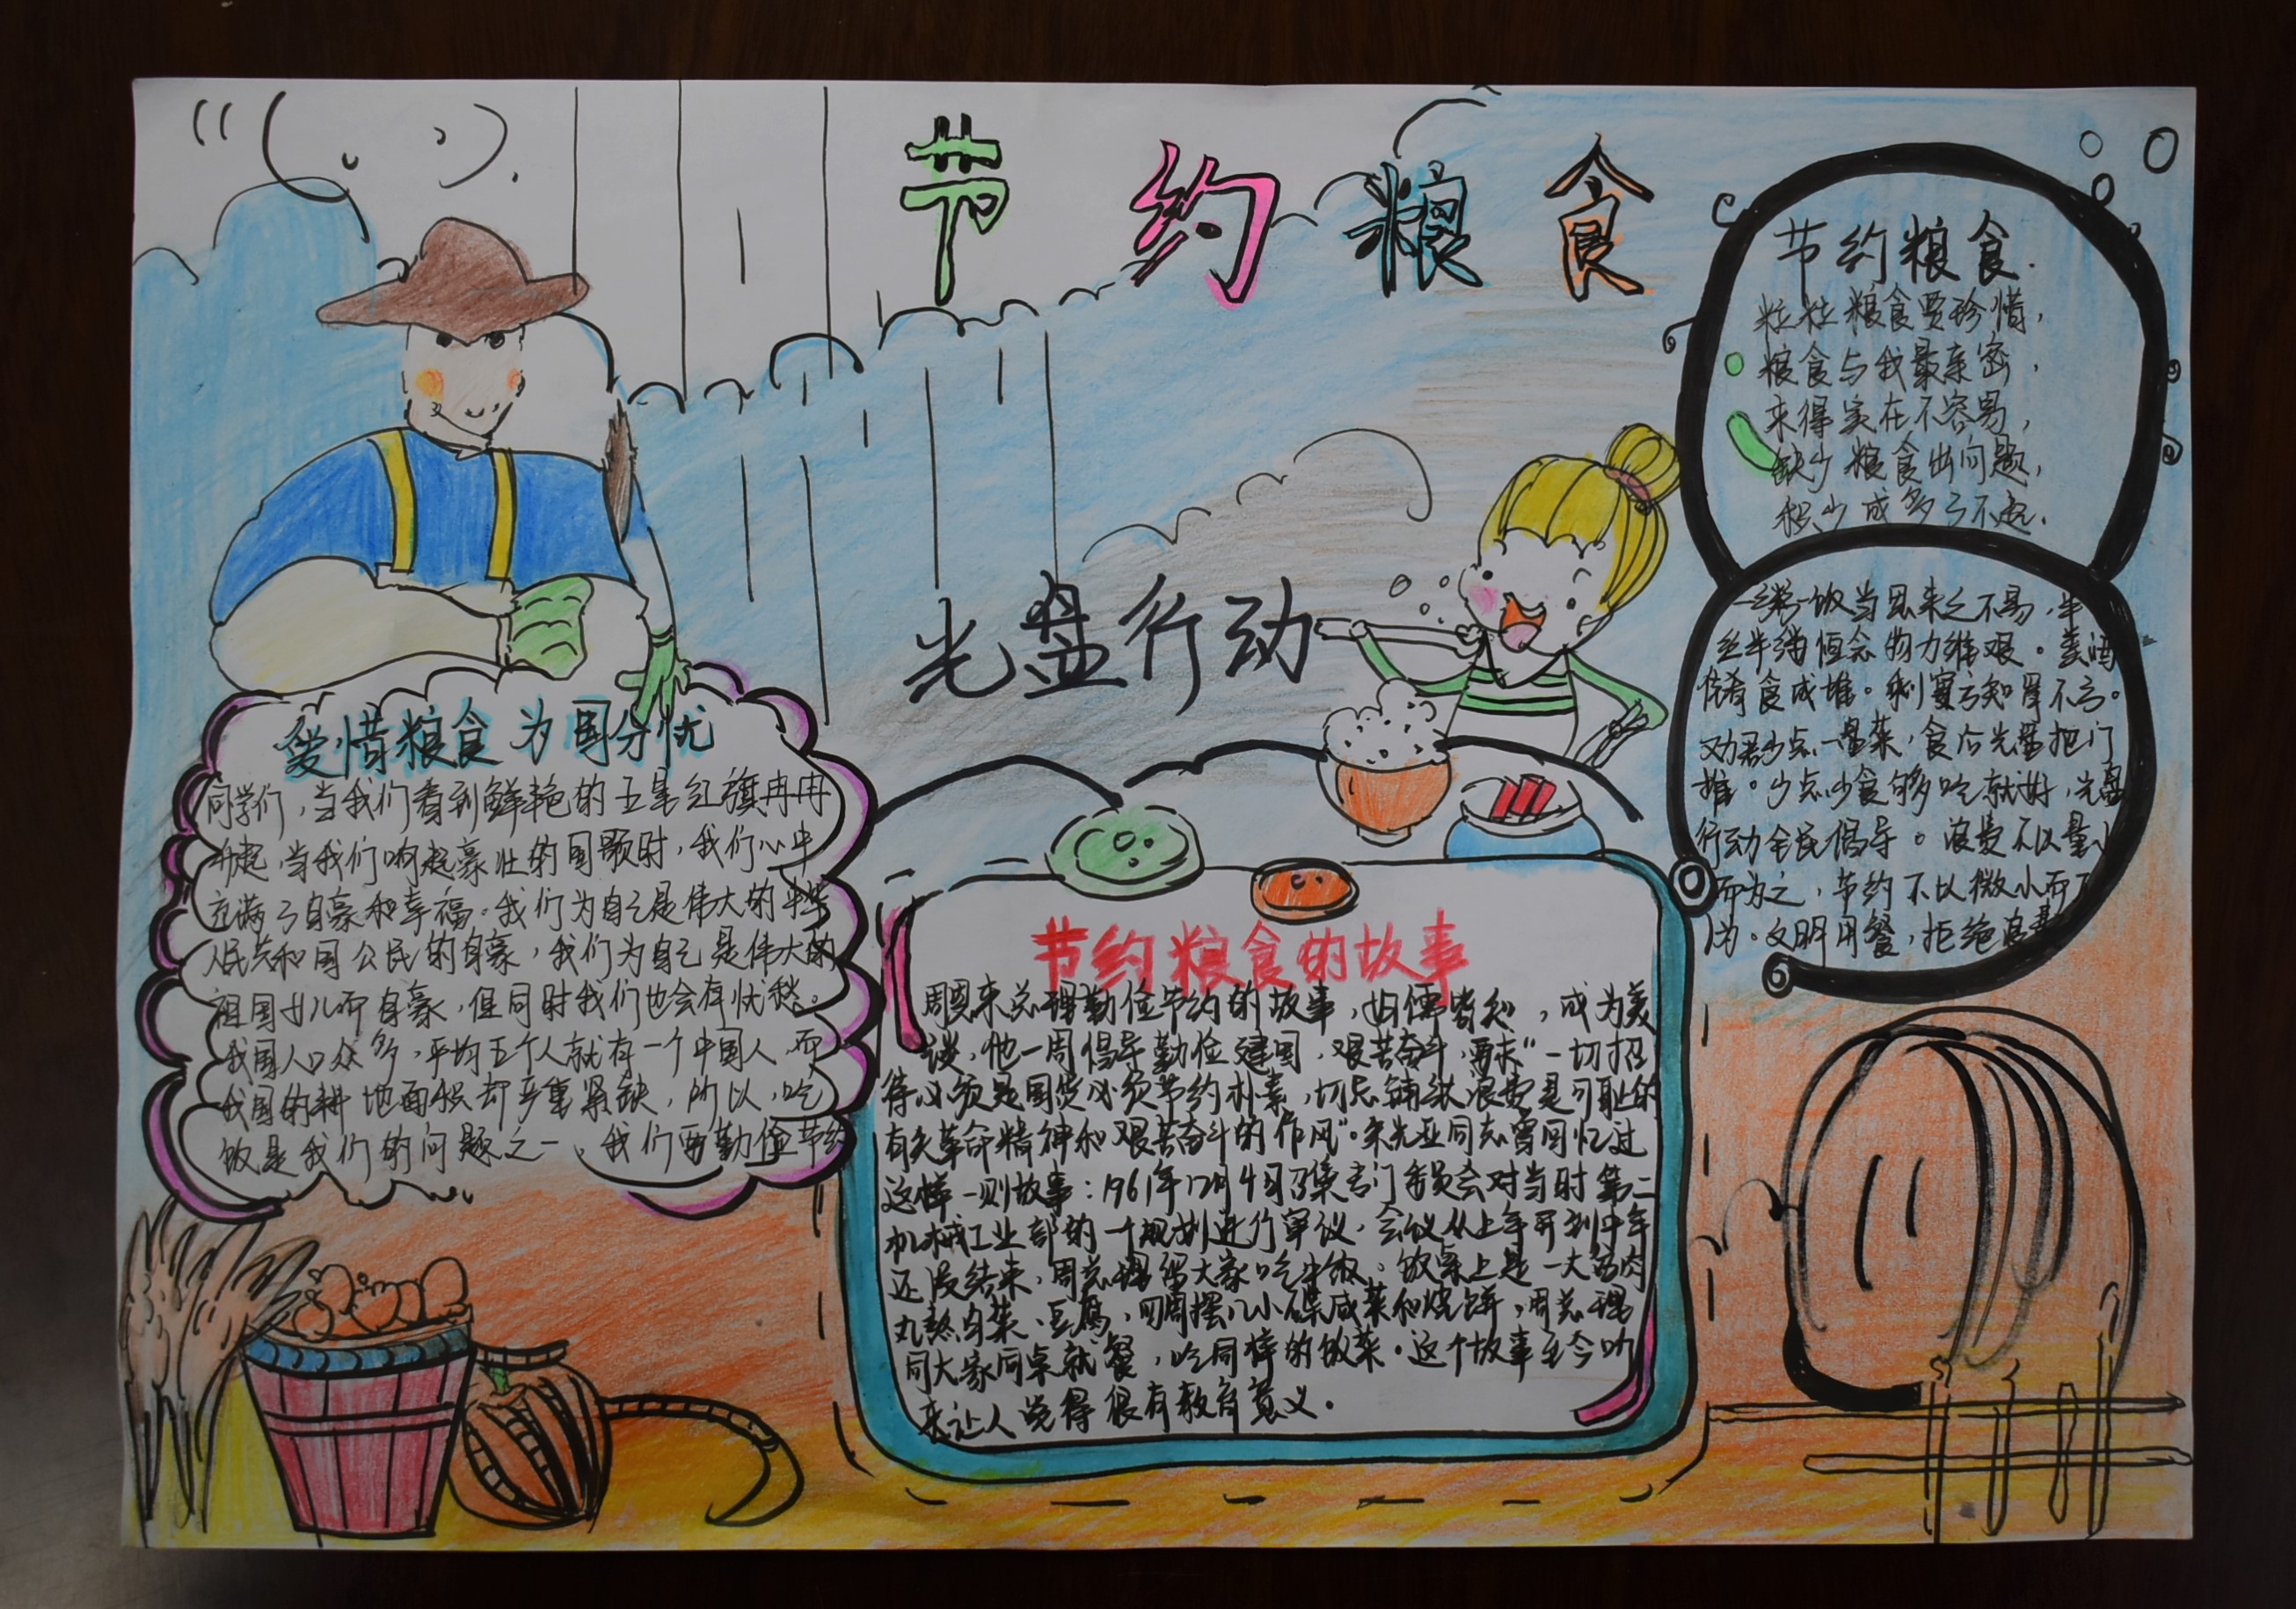 节约粮食
光盘行动
爱惜粮食 为国分忧
同学们，当我们看到鲜艳的五星红旗冉冉
升起，当我们响起豪壮的国歌时，我们心中
充满了自豪和幸福。我们为自己是伟大的中华
人民共和国公民的自豪，我们为自己是伟大的
祖国女儿而自豪，但同时我们也会有忧愁。
我国人口众多，平均五个人就有一个中国人，而
我国的耕地面积却严重紧缺，所以，吃
饭是我们的问题之一、我们要勤俭节约
节约粮食的故事
周恩来总理勤俭节约的故事，妇儒皆知，成为美
谈，他一周倡导勤俭建国，艰苦奋斗，要求“一切招
待必须是国货必须节约朴素，切忌铺张浪费是可耻的
有失革命精神和艰苦奋斗的作风”。朱光亚同志曾回忆过
这样一则故事：1961年12月4日召集专门委员会对当时第二
机械工业部的一个规划进行审议，会议从上午开到中午
还没结束，周总理留大家吃午饭。饭桌上是一大锅肉
丸熬白菜、豆腐，四周摆几小碟咸菜和烧饼，周总理
同大家同桌就餐，吃同样的饭菜。这个故事至今叻
来让人觉得很有教育意义。
节约粮食.
粒粒粮食要珍惜，
粮食与我最亲密，
来得实在不容易，
缺少粮食出问题，
积少成多了不起.
一粥一饭当思来之不易，半
丝半缕恒念物力维艰。美酒
佳肴食成堆。剩宴方知罪不亏。
又劝君少点一盘菜，食后光盘把门
推。少点少食够吃就好，光盘
行动全民倡导。浪费不以量小
而为之，节约不以微小而不
为。文明用餐，拒绝浪费